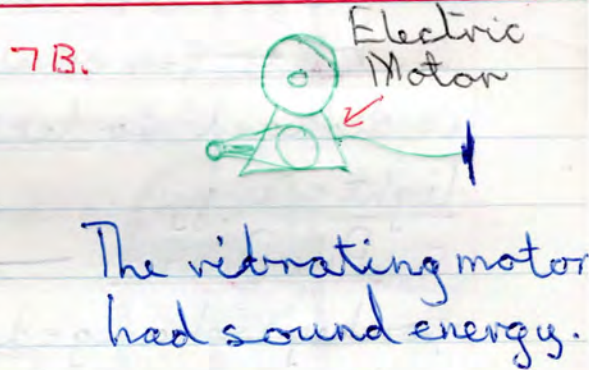 7B.
Electric
Motor
The vibrating motor
had sound energy.